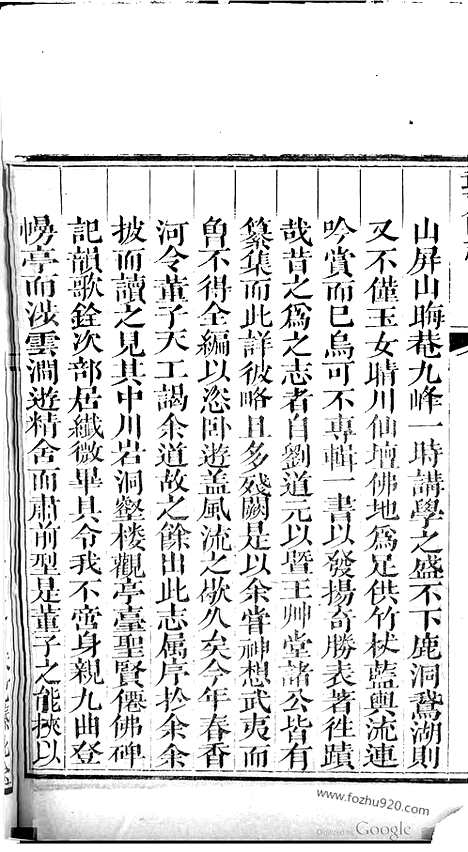 山屏山晦巷九峰一時講學之盛不下鹿洞鵞湖則
又不僅玉女晴川仙壇佛地爲足供竹杖藍輿流連
吟賞而已烏可不專輯一書以發揚奇勝表著徃蹟
哉昔之爲之志者自劉道元以曁王艸堂諸公皆有
纂集而此詳彼略且多殘闕是以余嘗神想武夷而
曾不得全編以恣卧遊盖風流之歇久矣今年春香
河令董子天工謁余道故之餘出此志属序扵余余
披而讀之見其中川岩洞壑樓觀亭臺聖賢僊佛碑
記韻歌銓次部居纖微畢具令我不啻身親九曲登
幔亭而涉雲澗遊精舍而肅前型是董子之能挾以
www.fozhu920.com
Digitized by Google